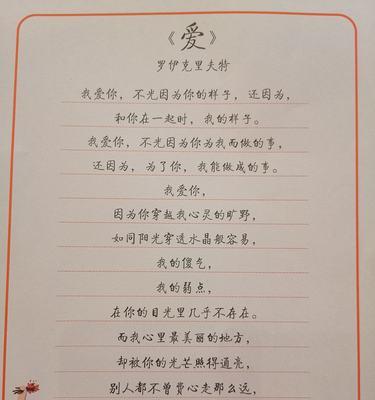 《爱》
罗伊克里夫特
我爱你，不光因为你的样子，还因为，
和你在一起时，我的样子。
我爱你，不光因为你为我而做的事，
还因为，为了你，我能做成的事。
我爱你，
因为你穿越我心灵的旷野，
如同阳光穿透水晶般容易，
我的傻气，
我的弱点，
在你的目光里几乎不存在。
而我心里最美丽的地方，
却被你的光芒照得通亮，
别人都不曾费心走那么远，